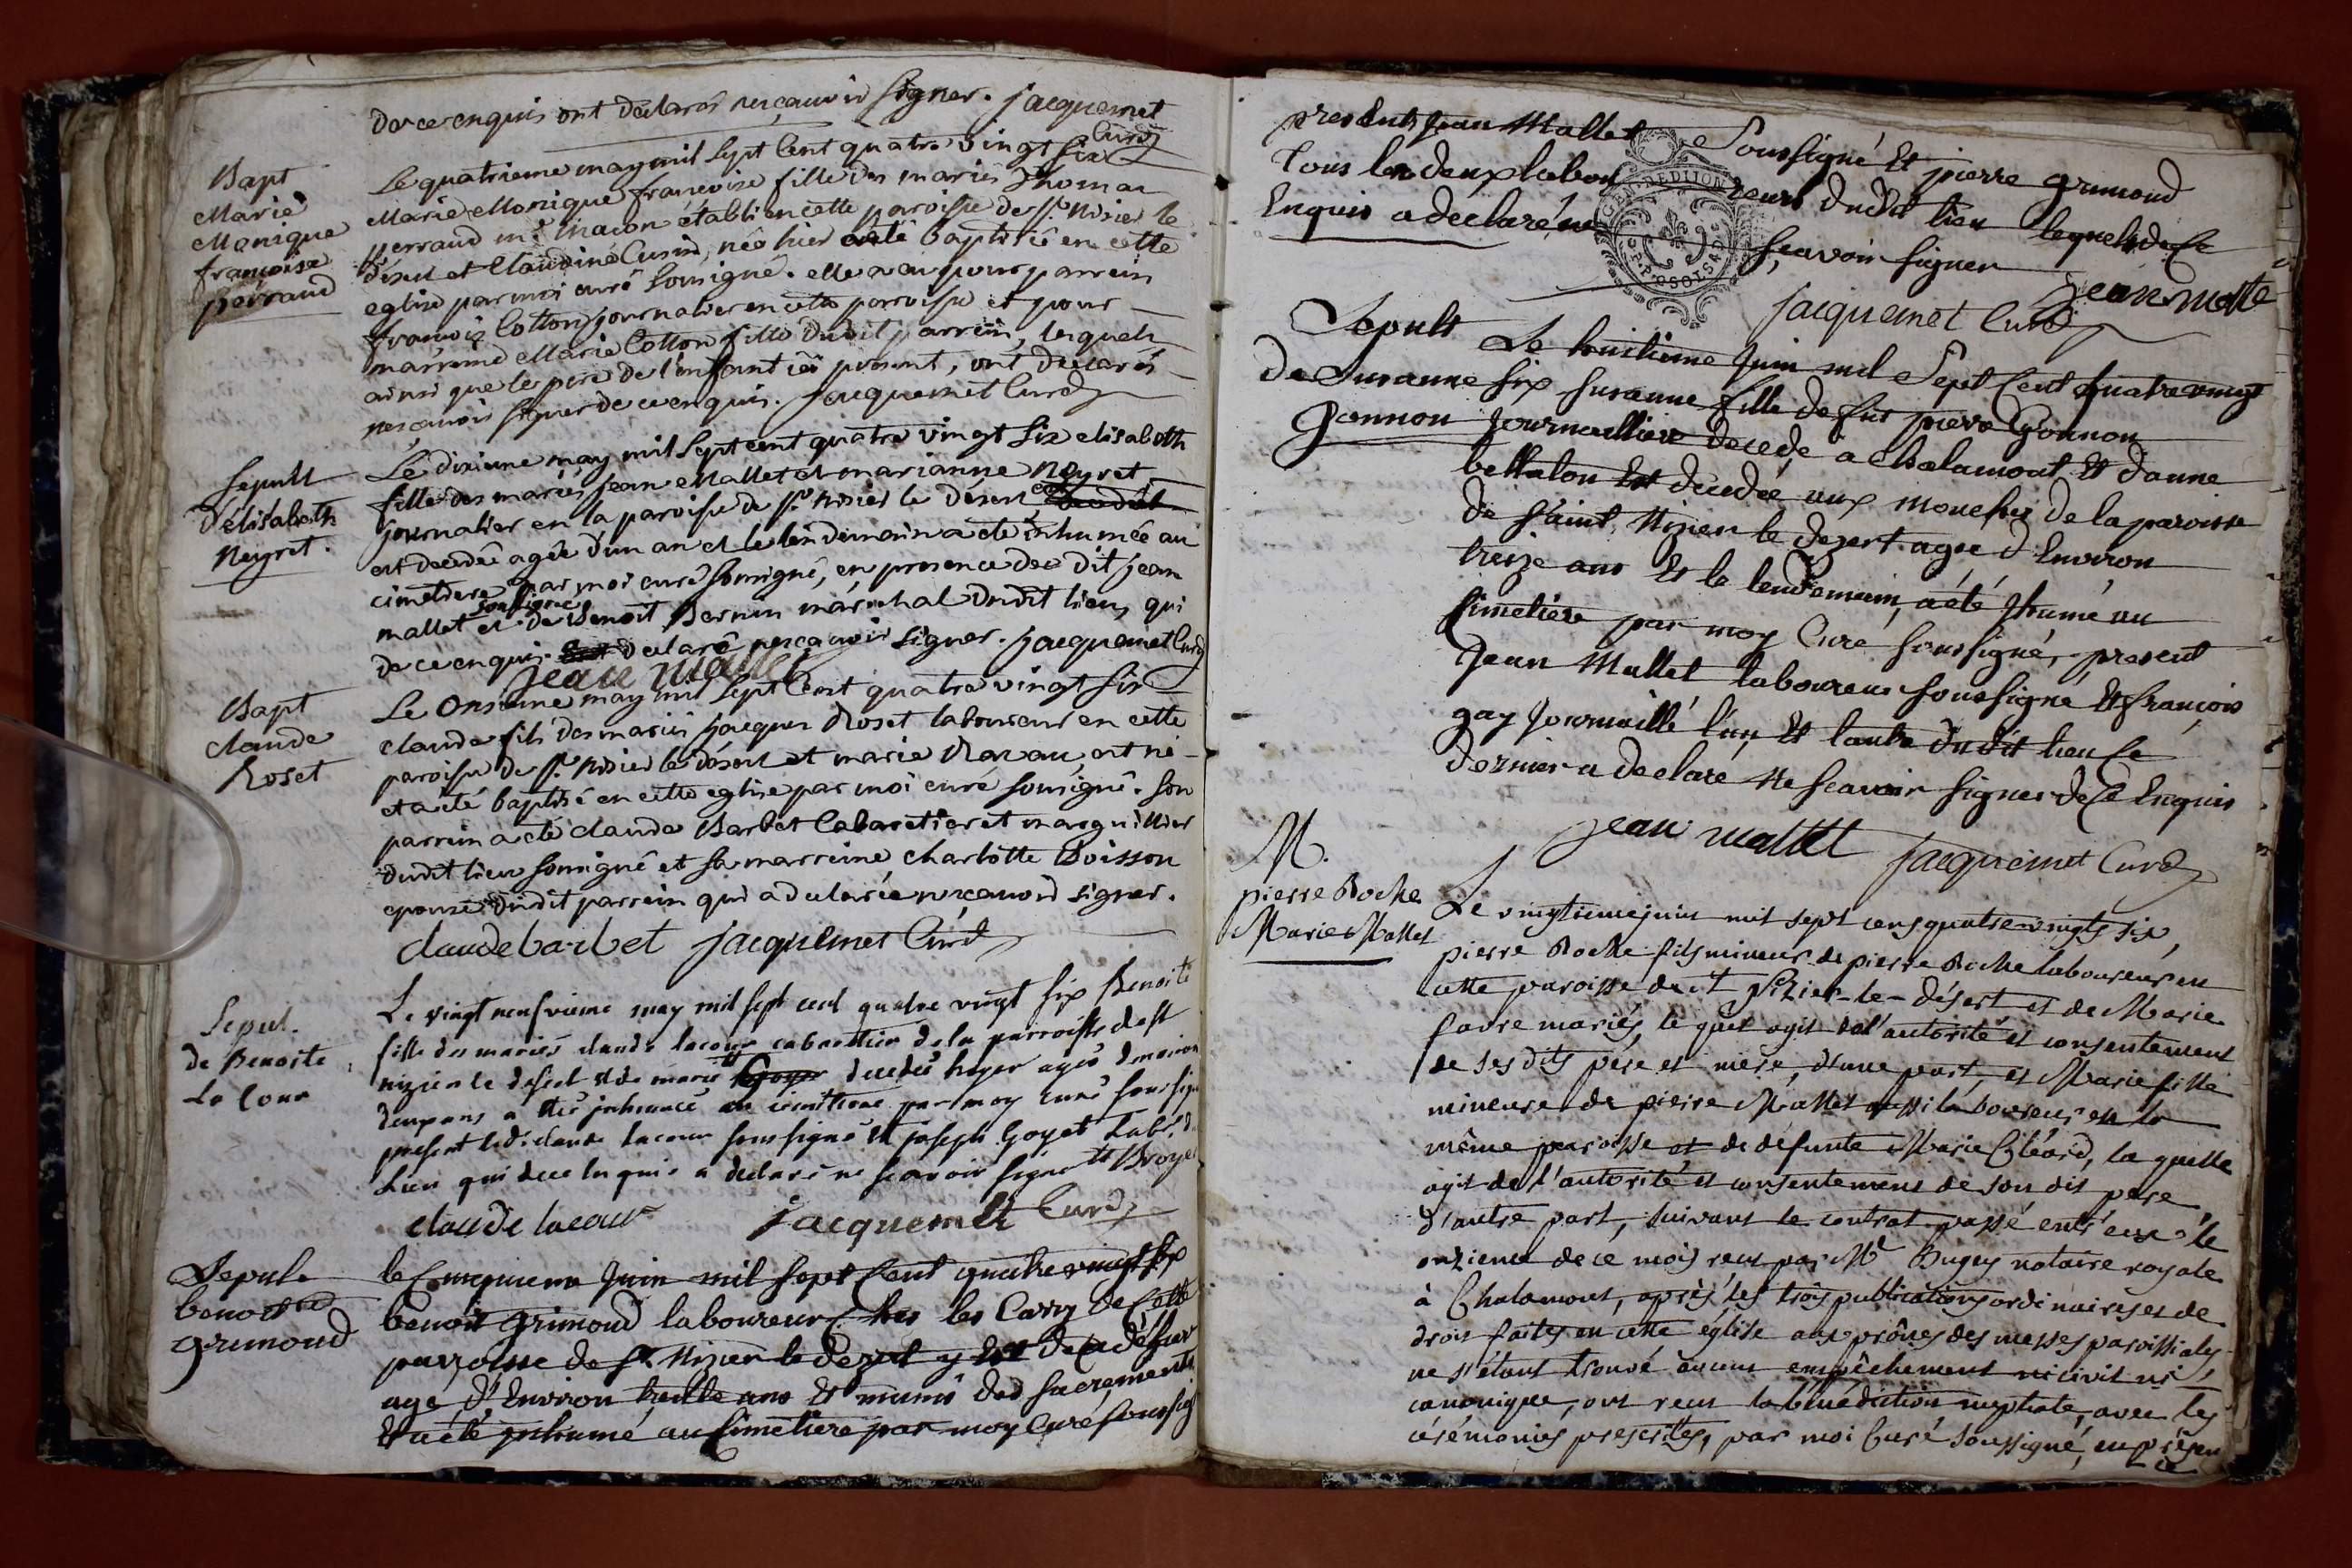 de ce enquis ont déclarés ne sçauvoir signer. jacquemet
Curé
Bapt
Marie
Monique
françoise
perraud
Le quatrieme may mil sept cent quatre vingt six
Marie Monique françoise fille des mariés Thomas
perraud me macon établi en cette paroisse de st. nisier le
désert et Claudine Cusin, née hier a été baptisée en cette
eglise par moi curé sousigné. elle a eu pour parrein
françois Cotton journalier en cette parroisse et pour
marreine Marie Cotton fille dudit parrein, lesquels
ainsi que le pere de l'enfant ici present, ont declarés
ne scavoir signer de ce enquis. jacquemet Curé
Sepult
d'élisabeth
Neyret.
Le dixieme may mil sept cent quatre vingt six elisabeth
fille des mariés jean Mallet et marianne Neyret
journalier en la paroisse de st. nisier le désert
est decedée agée d'un an et le lendemain a été inhumée au
cimetiere par moi curé sousigné, en presence de dit jean
mallet soussigné et de Benoit Bernin maréchal dudit lieu, qui
de ce enquis declaré ne sçavoir signer. jacquemet Curé
jean mallet
Bapt
claude
Roset
Le Onsieme may mil sept Cent quatre vingt six
claude fils des mariés jacques Roset laboureur en cette
paroisse de st. nisier le désert et marie Ravau, est né
et a été baptisé en cette eglise par moi curé sousigné. son
parrein a été claude Barbet Cabaretier et marguillier
dudit lieu sousigné et sa marreine charlotte Boisson
epouse dudit parrein qui a declarée ne scavoir signer.
claude barbet jacquemet Curé
Sepul.
de Benoite
La Cour
Le vingt neufvieme may mil sept cent quatre vingt six Benoite
fille des mariés claude lacour cabaretier de la parroisse de st
nizier le desert et de marie decedée hyer agée d'environ
deux ans a été inhumée au cimetiere par moy curé soussigné
present ledit claude lacour soussigné et joseph Goyet Labr. d.
Lieu qui de ce Enquis a declaré ne scavoir signer Broyer
claude lacour jacquemet Curé
Sepult
benoit
grimoud
le Cinquieme Juin mil sept Cent quatre vingt six
benoit grimoud laboureur Ches les Carry de Cette
parroisse de st. Nizier le dezert y Est decedé hier
age d'Environ trente ans Et munis des sacrements
Et a été inhumé au Cimetiere par moy Curé soussig
presents Jean Mallet Soussigné Et pierre grimoud
Tous les deux laboureurs dudit lieu lequel de Ce
Enquis a declaré ne sçavoir signer
GEN. DE DIJON
jacquemet Curé jean mallet
Sepult
de Suzanne
Gonnon
Le huitieme Juin mil Sept Cent quatre vingt
six suzanne fille de fut pierre Gonnon
journaillier decedé a Chalamont Et d'anne
bellaton Est decedée aux mouches de la paroisse
de saint Nizier le dezert agée d'Environ
treize ans Et le lendemain, a été Ihumé au
Cimetiere par moy Curé soussigné, present
Jean Mallet laboureur soussigné Et françois
gay Journaillié l'un Et l'autre dudit lieu Ce
dernier a declaré ne scavoir signer de Ce Enquis
jean mallet jacquemet Curé
M.
pierre Roche
Marie Mallet
Le vingtieme juin mil sept cens quatre-vingts six,
pierre Roche fils mineur de pierre Roche laboureur en
cette paroisse de st Nizier-le-désert et de Marie
favre mariés, le quel agit de l'autorité et consentement
de ses dits père et mère, d'une part, et Marie fille
mineure de pierre Mallet aussi laboureur en la
même paroisse et de défunte Marie Cléard, la quelle
agit de l'autorité et consentement de son dit pere
d'autre part, suivant le contrat passé entr'eux le
onzieme de ce mois reçu par Me Bugey notaire royale
à Chalamont, après les trois publications ordinaires et de
droit faites en cette église aux prônes des messes paroissiales
ne s'étant trouvé aucun empêchement ni civil ni
canonique, ont reçu la bénédiction nuptiale, avec les
cérémonies prescrites, par moi Curé soussigné, en présen
ce